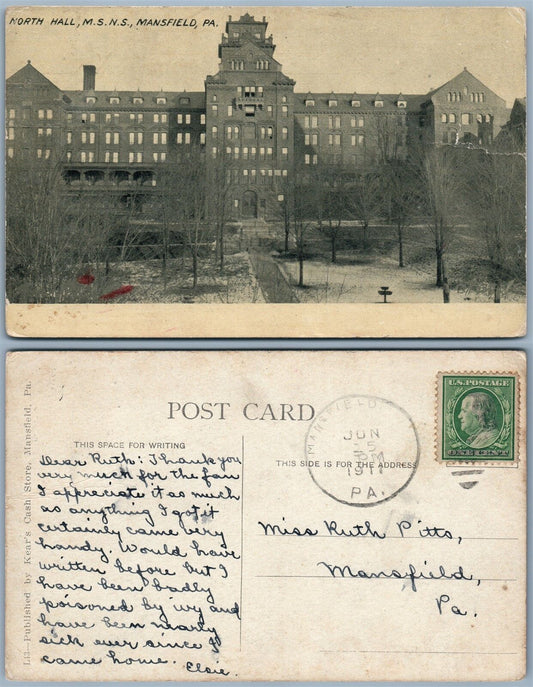 NORTH HALL, M.S.N.S., MANSFIELD, PA.
POST CARD
THIS SPACE FOR WRITING
THIS SIDE IS FOR THE ADDRESS
L3—Published by Kear's Cash Store, Mansfield, Pa.
U.S. POSTAGE
ONE CENT
MANSFIELD
JUN
5
PM
1911
PA.
Dear Ruth: Thank you
very much for the fan
I appreciate it as much
as anything I got it
certainly came very
handy. Would have
written before but I
have been badly
poisoned by ivy and
have been nearly
sick ever since I
came home.
Elsie.
Miss Ruth Pitts,
Mansfield,
Pa.